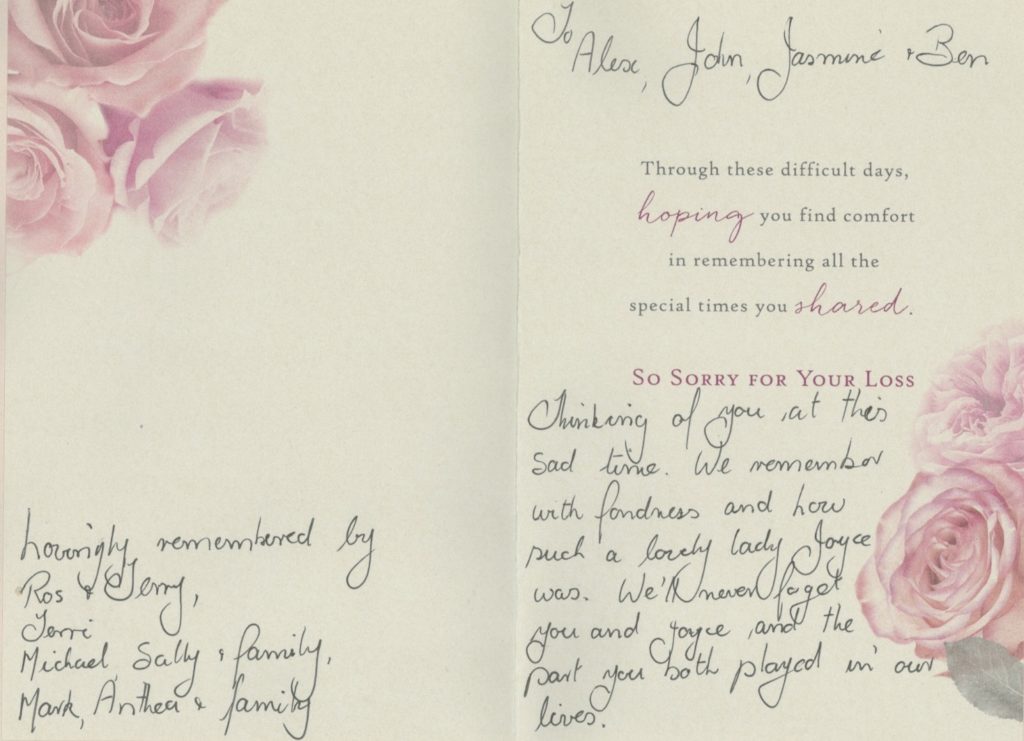 Lovingly remembered by
Ros & Terry,
Terri
Michael, Sally & family,
Mark, Anthea & family
To
Alex, John, Jasmine & Ben
Through these difficult days,
hoping you find comfort
in remembering all the
special times you shared.
So Sorry for Your Loss
Thinking of you at this
sad time. We remember
with fondness and how
such a lovely lady Joyce
was. We'll never forget
you and Joyce and the
part you both played in our
lives.